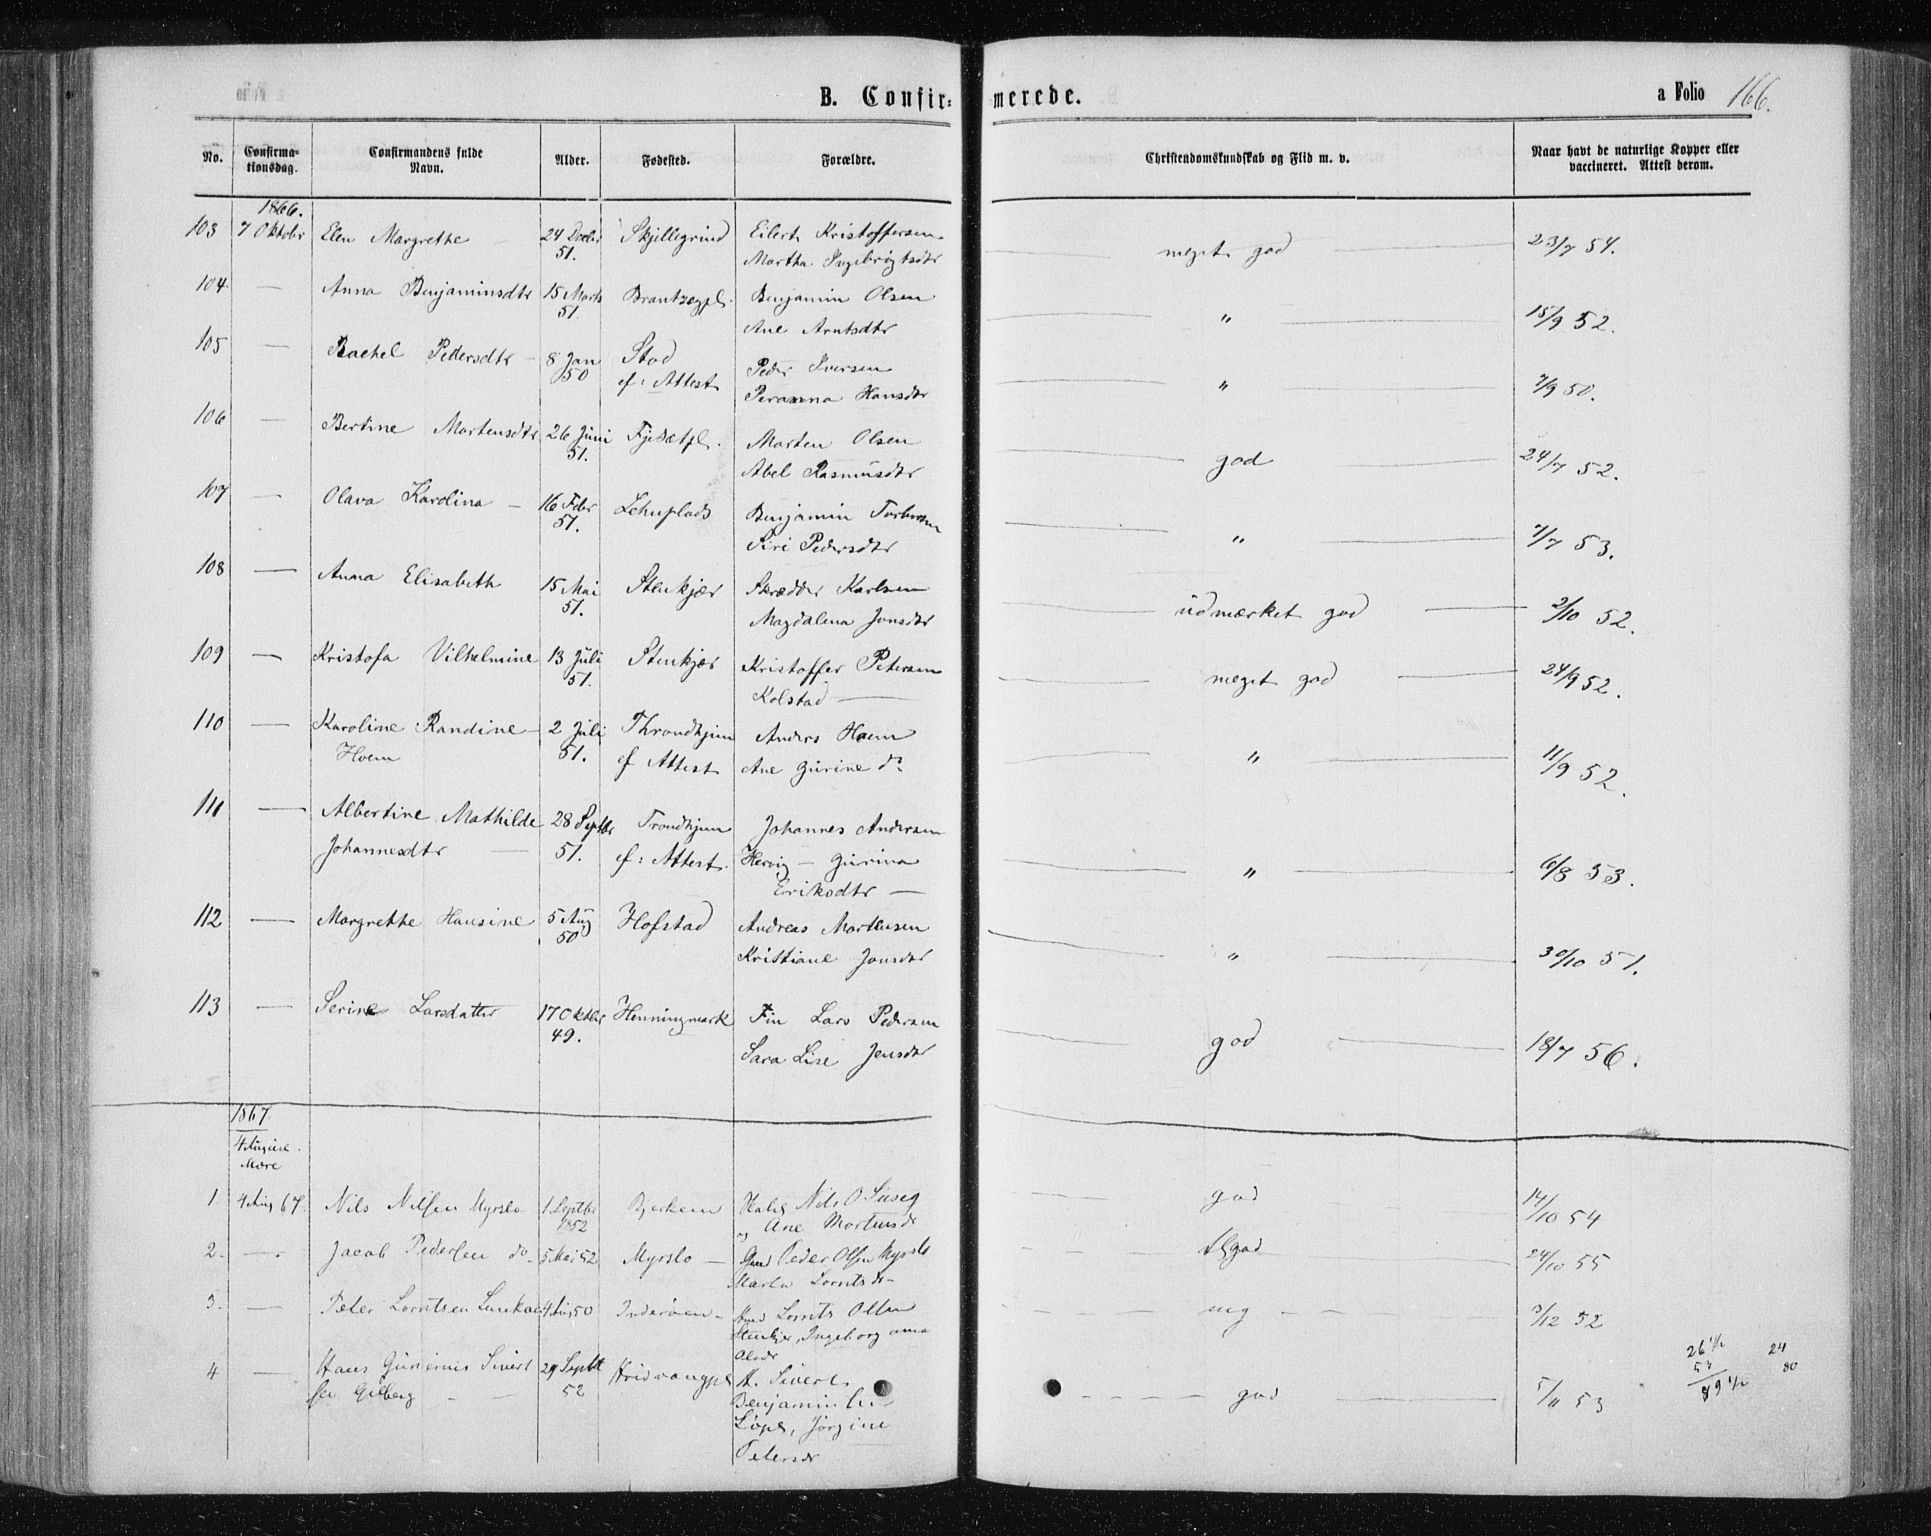 B. Confirmerede.
a Folio 166.
No. Confirmationsdag. Confirmandens fulde Navn. Alder. Fødested. Forældre. Christendomskundskab og Flid m. v. Naar havt de naturlige Kopper eller vaccineret. Attest derom.
1866.
103 7 Oktobr Elen Margrethe 24 Decbr 51. Skjellegrind Eilert Kristoffersen Martha Ingebrigtsdtr meget god 23/7 54.
104 — Anna Benjaminsdtr 15 Marts 51 Brantzegpl. Benjamin Olsen Ane Arntsdtr " 15/9 52.
105 — Rachel Pedersdtr 8 Jan 50 Stod ef: Attest Peder Iversen Peranna Hansdtr " 7/9 50.
106 — Bertine Mortensdtr 26 Juni 51. Fjedætpl. Morten Olsen Abel Rasmusdtr god 24/7 52.
107 — Olava Karolina — 16 Febr 51. Lehnplads Benjamin Torbersen Siri Pedersdtr " 7/7 53.
108 — Anna Elisabeth 15 Mai 51. Stenkjær Skrædder Karlsen Magdalena Jonsdtr udmærket god 2/10 52.
109 — Kristofa Vilhelmine 13 Juli 51. Stenkjær Kristoffer Petersen Kolstad — meget god 24/9 52.
110 — Karoline Randine — Hoem 2 Juli 51. Throndhjem ef Attest Anders Hoem Ane Gurine do " 11/9 52.
111 — Albertine Mathilde Johannesdtr — 28 Septbr 51. Trondhjem ef: Attest. Johannes Andersen Hervig — Gurina Eriksdtr — " 6/8 53.
112 — Margrethe Hansine 5 Aug 50 Hofstad Andreas Mortensen Kristiane Jonsdtr " 30/10 51.
113 — Serine Larsdatter 17 Oktbr 49. Henningmark Fin Lars Pedersen Sara Lise Jensdtr god 18/7 56.
1867
4 August. Mære
1. 4 Aug 67. Nils Nilsen Myrslo 1 Septbr 1852 Bjerkem Nils O og Ane Mortensdr god 14/10 54
2. — Jacob Pedersen do 5 Mai 52 Myrslo — Gmd Peder Olsen Myrslo Marta Lorntsdr tlgod 24/10 55
3. — Peter Lorntsen 4 Aug 50 Inderøen — Lornts Olsen Stenkjer, Ingeborg ana Olsdr mg 3/12 52
4 — Hans Gunerius Sivertsen Gilberg — 29 Septbr 52 Sivert Benjaminsen Jørgine Petersdr god 5/11 53
26 1/2 24
53 80
79 1/2